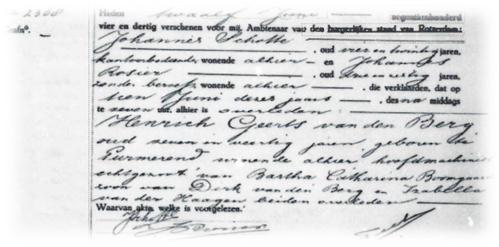 2368
Heden twaalf Juni negentienhonderd
vier en dertig verschenen voor mij, Ambtenaar van den burgerlijken stand van Rotterdam:
Johannes Scholte
, oud vier en twintig jaren,
kantoorbediende, wonende alhier – en Johannes
Rosier, oud jaren,
zonder beroep, wonende alhier, die verklaarden, dat op
tien Juni dezes jaars, des na middags
te zeven uur, alhier is overleden:
Henrich Geerts van den Berg
oud zeven en veertig jaren, geboren te
Purmerend wonende alhier, hoofdmachinist
echtgenoot van Bartha Catharina Boomgaard
zoon van Dirk van den Berg en Isabella
van der Haagen beiden overleden
Waarvan akte, welke is voorgelezen.
JScholte